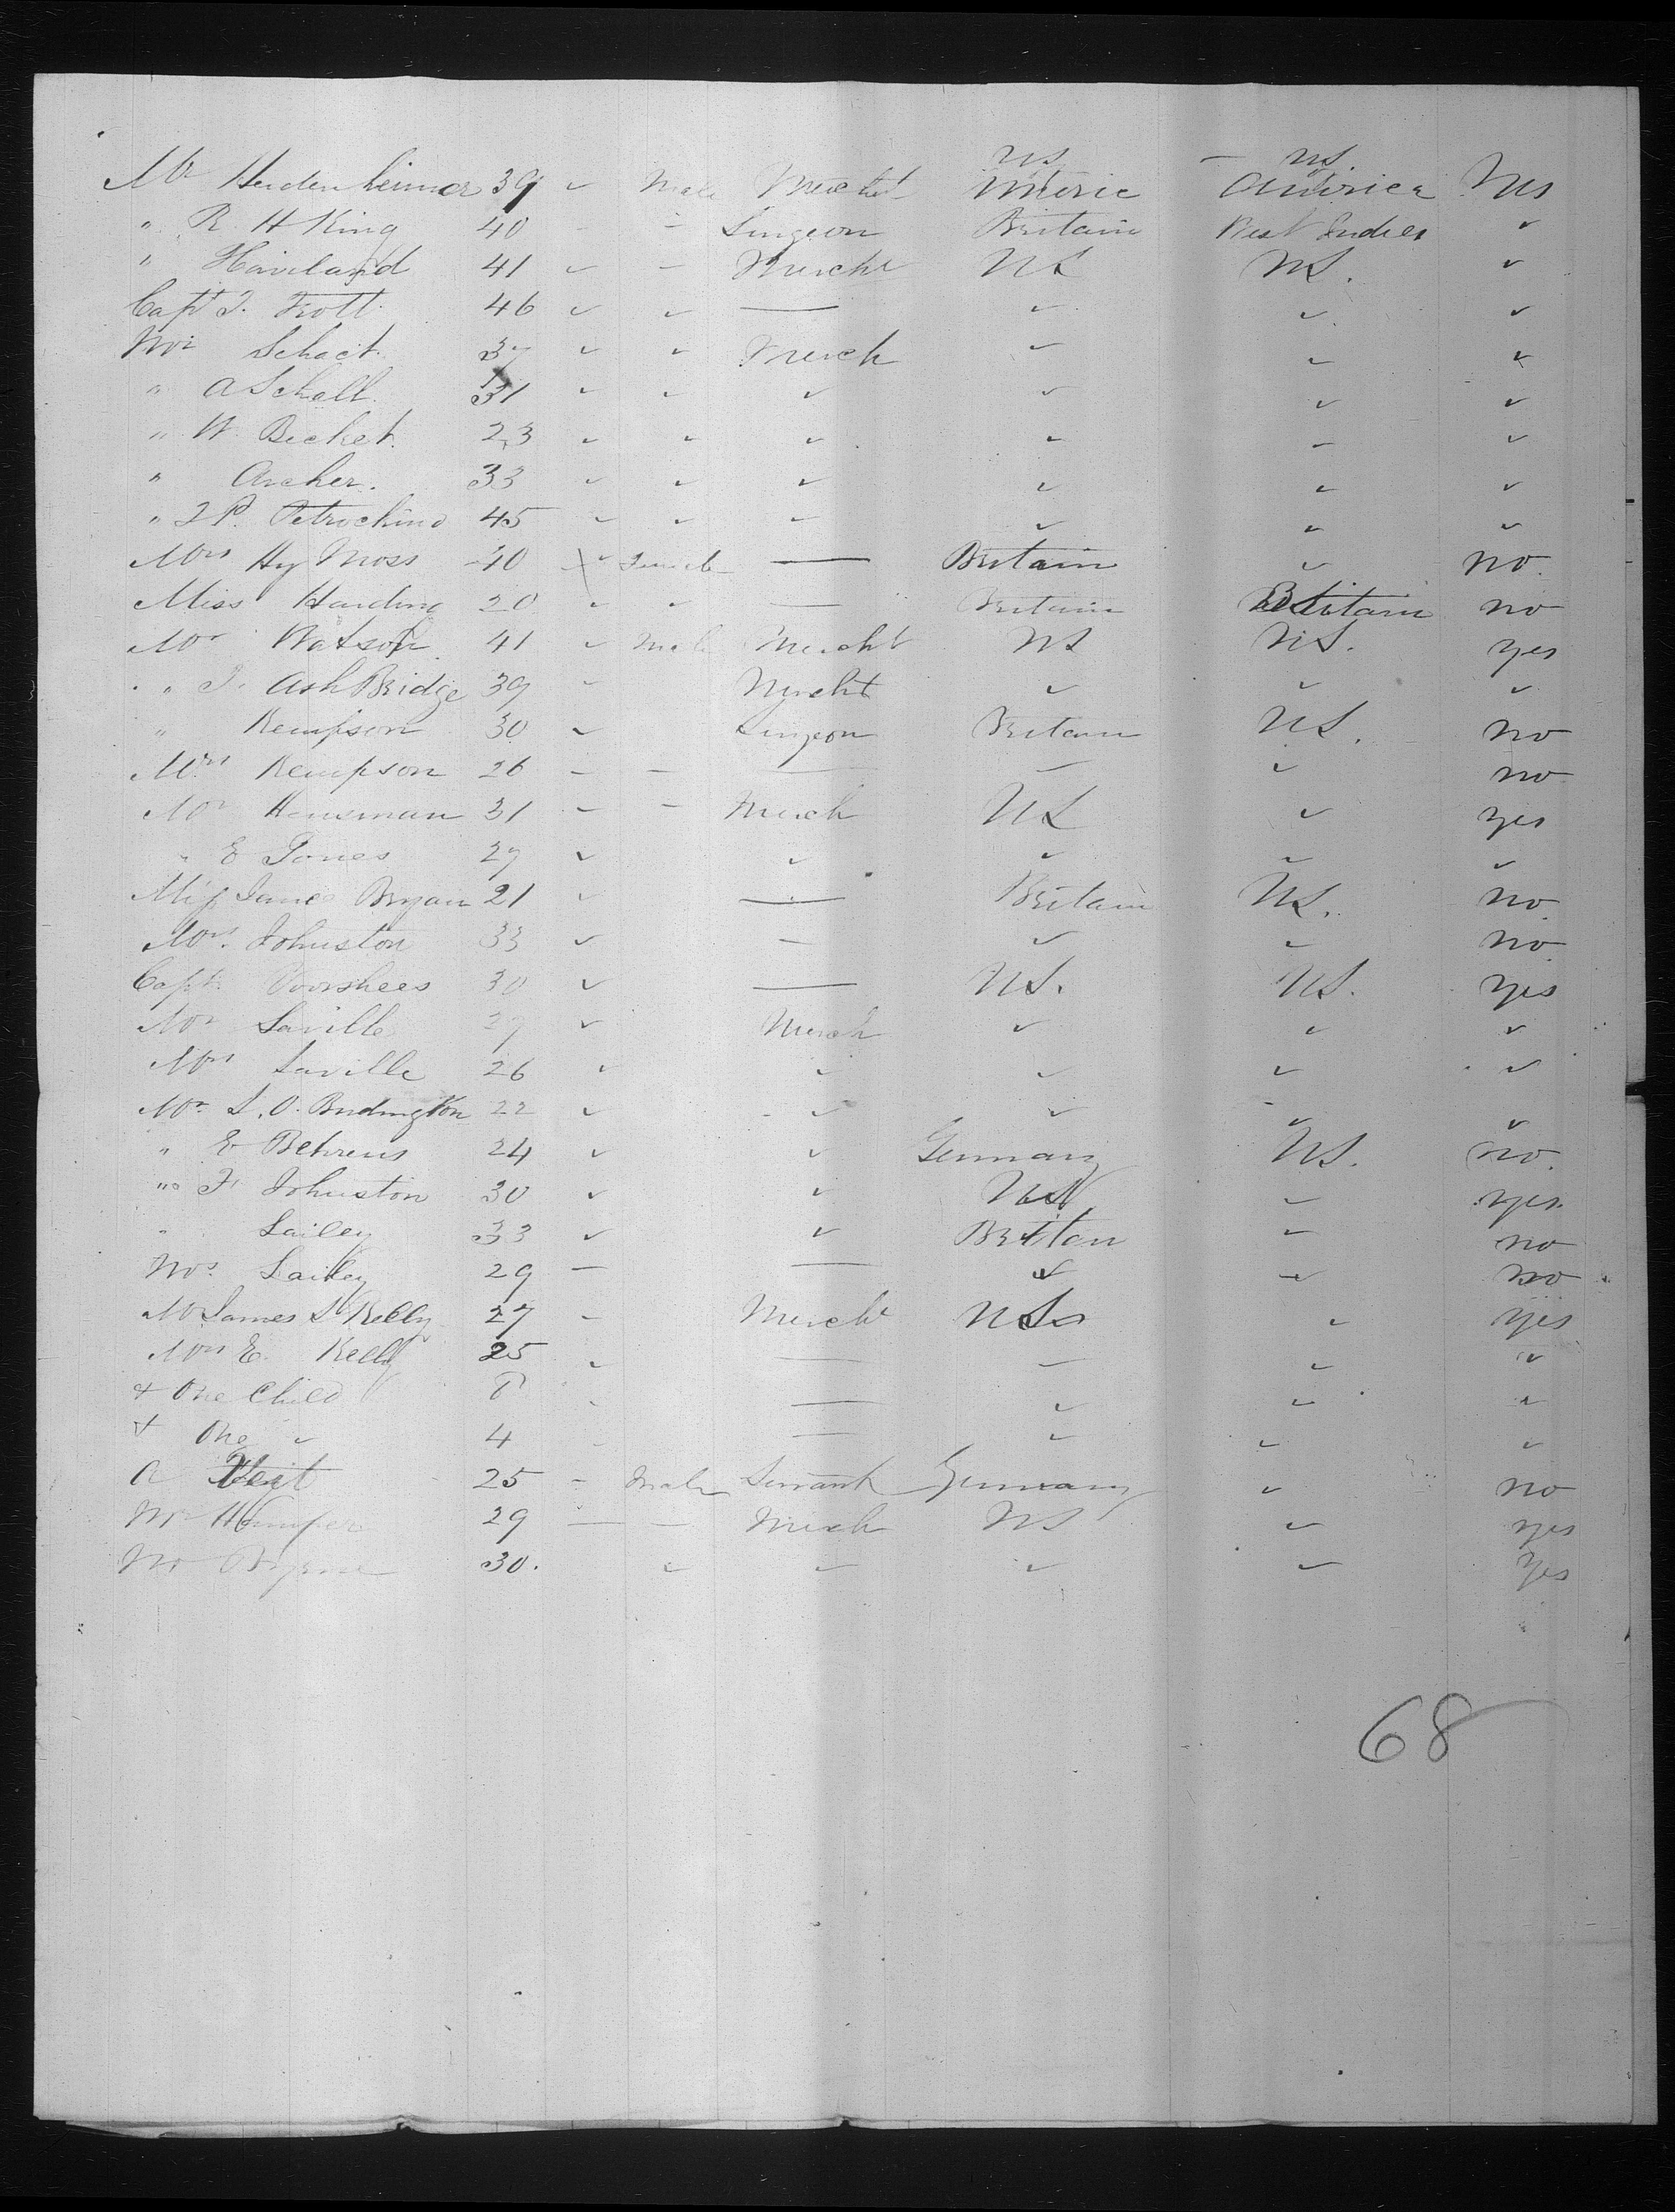 US — US.
Mr Heidenheimer 39 ✓ Male Mercht America America Yes
" R. H King 40 - - Surgeon Britain West Indies ✓
" Haviland 41 ✓ - Mercht US US. ✓
Capt J. Trott 46 ✓ ✓ — ✓ ✓ ✓
Mr Schact 37 ✓ ✓ Merch ✓ ✓ ✓
" A Schell 31 ✓ ✓ ✓ ✓ ✓ ✓
" W. Becket. 23 ✓ ✓ ✓ ✓ – ✓
" Archer. 33 ✓ ✓ ✓ ✓ ✓ ✓
" J P. Petrochino 45 ✓ ✓ ✓ ✓ ✓ ✓
Mrs Hy Moss 40 ✓ Female — Britain ✓ no.
Miss Harding 20 ✓ ✓ — Britain Britain no
Mr Watson 41 ✓ Male Mercht US US. yes
" J. AshBridge 39 ✓ Mercht ✓ ✓ ✓
" Kempson 30 ✓ Surgeon Britain US. no
Mrs Kempson 26 – – — – ✓ no
Mr Hensman 31 – – Merch US ✓ yes
" E Jones 27 ✓ ✓ ✓ ✓ ✓
Miss Jane Bryan 21 ✓ — Britain US. no
Mrs. Johnston 33 ✓ – ✓ ✓ no
Capt. Voorshees 30 ✓ — US. US. yes
Mr Saville 27 ✓ Merch ✓ ✓ ✓
Mrs Saville 26 ✓ ✓ ✓ ✓ ✓
Mr. S. O. Budington 22 ✓ ✓ ✓ ✓ ✓
" E Behrens 24 ✓ ✓ Germany US. no.
" F. Johnston 30 ✓ ✓ US – yes.
" Sailey 33 ✓ ✓ Britain – no
Mrs. Sailey 29 – — ✓ ✓ no
Mr James S Kelly 27 – Mercht US ✓ yes
Mrs E. Kelly 25 ✓ — – ✓ ✓
+ One Child — ✓ ✓ ✓
+ One ✓ 4 — ✓ ✓ ✓
A Veit 25 – Male Servant Germany ✓ no
Mr 29 — — Merch US ✓ yes
Mr Byrne 30. ✓ ✓ ✓ ✓ Yes
68